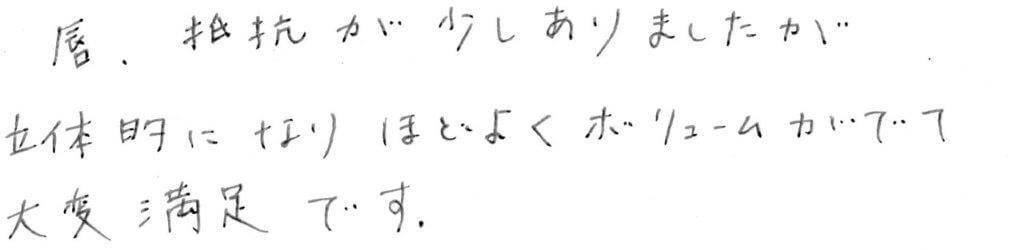 唇、抵抗が少しありましたが
立体的になりほどよくボリュームがでて
大変満足です.